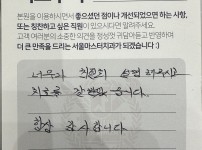 본원을 이용하시면서 좋으셨던 점이나 개선되었으면 하는 사항,
또는 칭찬하고 싶은 직원이 있으시다면 말씀해주세요.
고객 여러분의 소중한 의견을 정성껏 귀담아듣고 반영하여
더 큰 만족을 드리는 서울마스터치과가 되겠습니다 :)
너무나 친절히 설명 해주시고
치료를 잘 받았습니다.
항상 감사합니다.